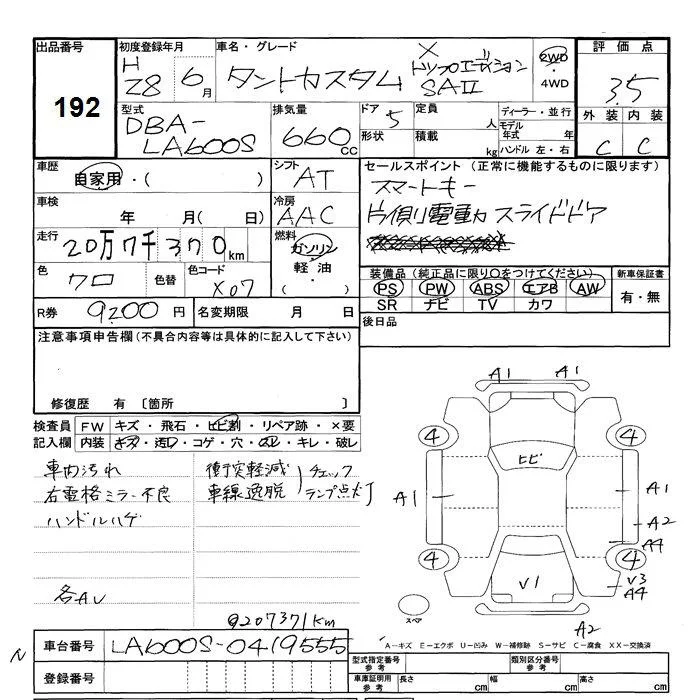 出品番号
192
初度登録年月
H
28 6月
車名・グレード
タントカスタム
X
トップエディション
SAII
2WD
・
4WD
評価点
3.5
外装 内装
C C
型式
DBA-
LA600S
排気量
660cc
ドア
5
形状
定員
人
積載
kg
ディーラー・並行
モデル
年式 年
ハンドル 左・右
車歴
自家用・( )
シフト
AT
車検
年 月( 日)
冷房
AAC
走行
20万7千370km
燃料
ガソリン
・
軽油
・
( )
色
クロ
色替
色コード
X07
R券
9200円
名変期限 月 日
セールスポイント (正常に機能するものに限ります)
スマートキー
片側電動スライドドア
装備品(純正品に限り○をつけてください)
PS PW ABS エアB AW
SR ナビ TV カワ
新車保証書
有・無
後日品
注意事項申告欄(不具合内容等は具体的に記入して下さい)
修復歴 有 〔箇所 〕
検査員
記入欄
FW キズ・飛石・ヒビ割・リペア跡・×要
内装 キズ・汚れ・コゲ・穴・スレ・キレ・破レ
車内汚れ
右電格ミラー不良
ハンドルハゲ
衝突軽減
車線逸脱
チェック
ランプ点灯
各AU
@207371km
A1 A1
4 4
ヒビ
A1 A1
A2
A4
4 4
V1
V3
A4
スペア
A2
N
車台番号
LA600S-0419555
登録番号
A－キズ E－エクボ U－凹み W－補修跡 S－サビ C－腐食 XX－交換済
型式指定番号
参考
類別区分番号
参考
車庫証明用
参考
長さ cm
幅 cm
高さ cm